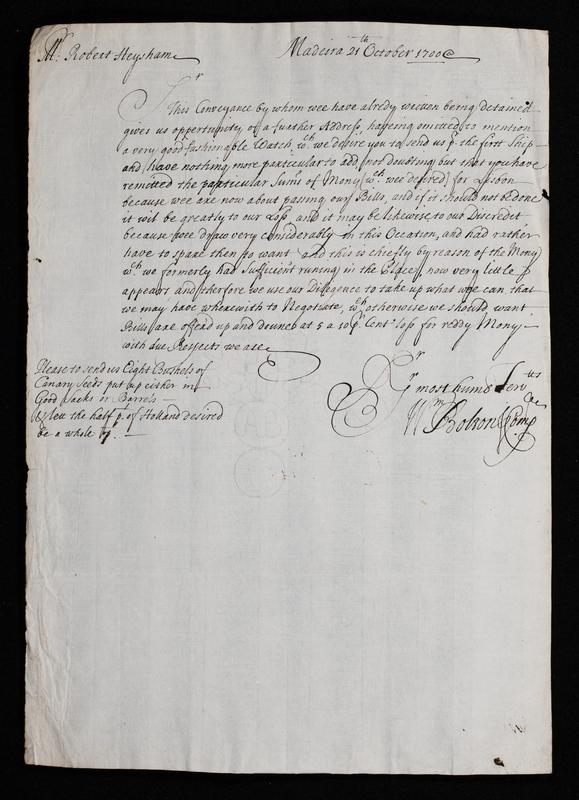 Mr. Robert Heysham
Madeira 21th October 1700
Sr
This Conveyance by whom wee have alredy written being detained
gives us oppertunity of a further Address, haveing omitted to mention
a very good fashionable Watch, wch. we desire you to send us p. the first Ship
and (have nothing more particular to add, not doubting but that you have
remitted the particular Sums of Mony (wch. wee desired) for Lisbon
because wee are now about passing our Bills, and if it should not be done
it will be greatly to our Loss, and it may be likewise to our Discredit
because wee draw very considerably in this Occation, and had rather
have to spare then to want and this is chiefly by reason of the Mony
wch. we formerly had Sufficient runing in the Place, now very little
appears and therefore we use our Diligence to take up what we can that
we may have wherewith to Negotiate, wch. otherwise we should want
Bills are offerd up and downe at 5 a 10 p. Cent loss for reddy Mony
with due Respects we are
Please to send us Eight Bushels of
Canary Seeds put up either in
Good Sacks or Barrels
& lett the half p. of Holland desired
be a whole
Sr
Yr. most humb Servtts
Wm Bolton & Comp